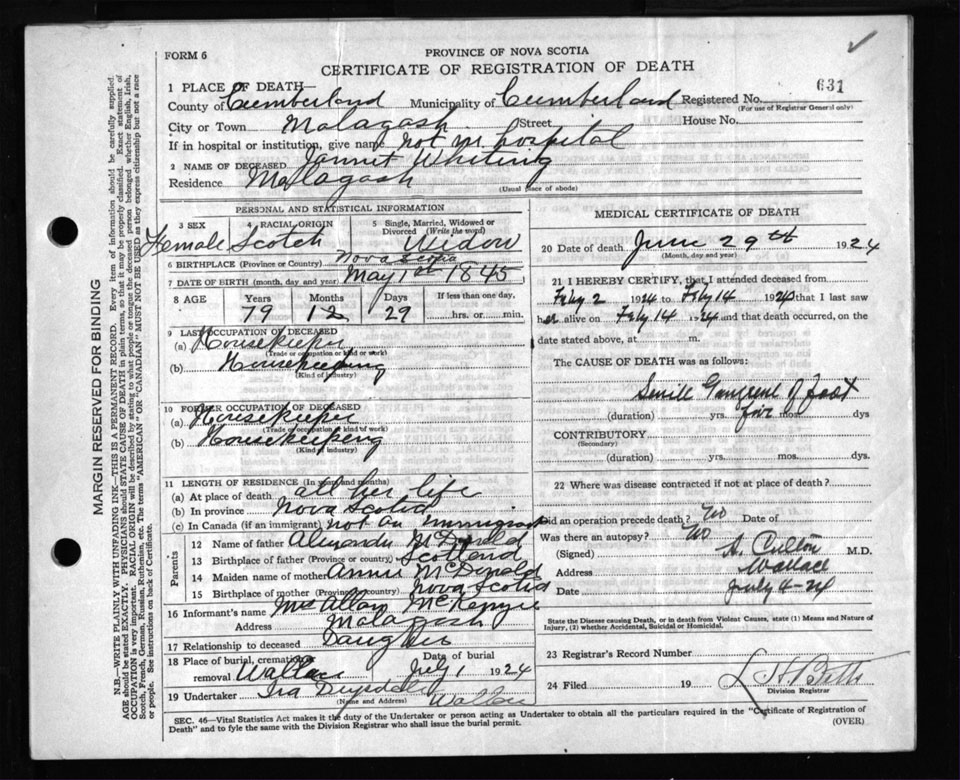 FORM 6
PROVINCE OF NOVA SCOTIA
CERTIFICATE OF REGISTRATION OF DEATH
631
1 PLACE OF DEATH—
County of Cumberland Municipality of Cumberland Registered No.
(For use of Registrar General only)
City or Town Malagash Street House No.
If in hospital or institution, give name not in hospital
2 NAME OF DECEASED Jannit Whiting
Residence Malagash
(Usual place of abode)
PERSONAL AND STATISTICAL INFORMATION
3 SEX 4 RACIAL ORIGIN 5 Single, Married, Widowed or Divorced (Write the word)
Female Scotch Widow
6 BIRTHPLACE (Province or Country) Nova Scotia
7 DATE OF BIRTH (month, day, and year) May 1st 1845
8 AGE Years Months Days If less than one day,
79 12 29 hrs. or min.
9 LAST OCCUPATION OF DECEASED
(a) Housekeeper
(Trade or occupation or kind of work)
(b) Housekeeping
(Kind of industry)
10 FORMER OCCUPATION OF DECEASED
(a) Housekeeper
(Trade or occupation or kind of work)
(b) Housekeepeng
(Kind of industry)
11 LENGTH OF RESIDENCE (In years and months)
(a) At place of death all her life
(b) In province Nova Scotia
(c) In Canada (if an immigrant) not an immigrant
Parents
12 Name of father McDonald
13 Birthplace of father (Province or country) Scotland
14 Maiden name of mother Annie McDonald
15 Birthplace of mother (Province or country) Nova Scotia
16 Informant's name Allan McKenzie
Address Malagash
17 Relationship to deceased Daughter
18 Place of burial, cremation or removal Wallace Date of burial July 1 1924
19 Undertaker Ira Wallace
(Name and Address)
MEDICAL CERTIFICATE OF DEATH
20 Date of death June 29th 1924
(Month, day and year)
21 I HEREBY CERTIFY, that I attended deceased from
Feby 2 1924 to Feby 14 1924 that I last saw
her alive on Feby 14 1924 and that death occurred, on
date stated above, at m.
The CAUSE OF DEATH was as follows:
Senile Gangrene of Foot
(duration) yrs. five mos. dys
CONTRIBUTORY
(Secondary)
(duration) yrs. mos. dys.
22 Where was disease contracted if not at place of death?
Did an operation precede death? No Date of
Was there an autopsy? No
(Signed) A. Culton M.D.
Address Wallace
Date July 4-24
State the Disease causing Death, or in death from Violent Causes, state (1) Means and Nature of Injury, (2) whether Accidental, Suicidal or Homicidal.
23 Registrar's Record Number
24 Filed 19
Division Registrar
SEC. 46—Vital Statistics Act makes it the duty of the Undertaker or person acting as Undertaker to obtain all the particulars required in the "Certificate of Registration of
Death" and to fyle the same with the Division Registrar who shall issue the burial permit.
(OVER)
MARGIN RESERVED FOR BINDING
N.B.—WRITE PLAINLY WITH UNFADING INK—THIS IS A PERMANENT RECORD. Every item of information should be carefully supplied.
AGE should be stated EXACTLY. PHYSICIANS should STATE CAUSE OF DEATH in plain terms, so that it may be properly classified. Exact statement of
OCCUPATION is very important. RACIAL ORIGIN will be described by stating to what people or tongue the deceased person belonged whether English, Irish,
Scotch, French, German, Russian, Ruthenian, etc. The terms "AMERICAN" OR "CANADIAN" MUST NOT BE USED as they express citizenship but not a race
or people. See instructions on back of Certificate.